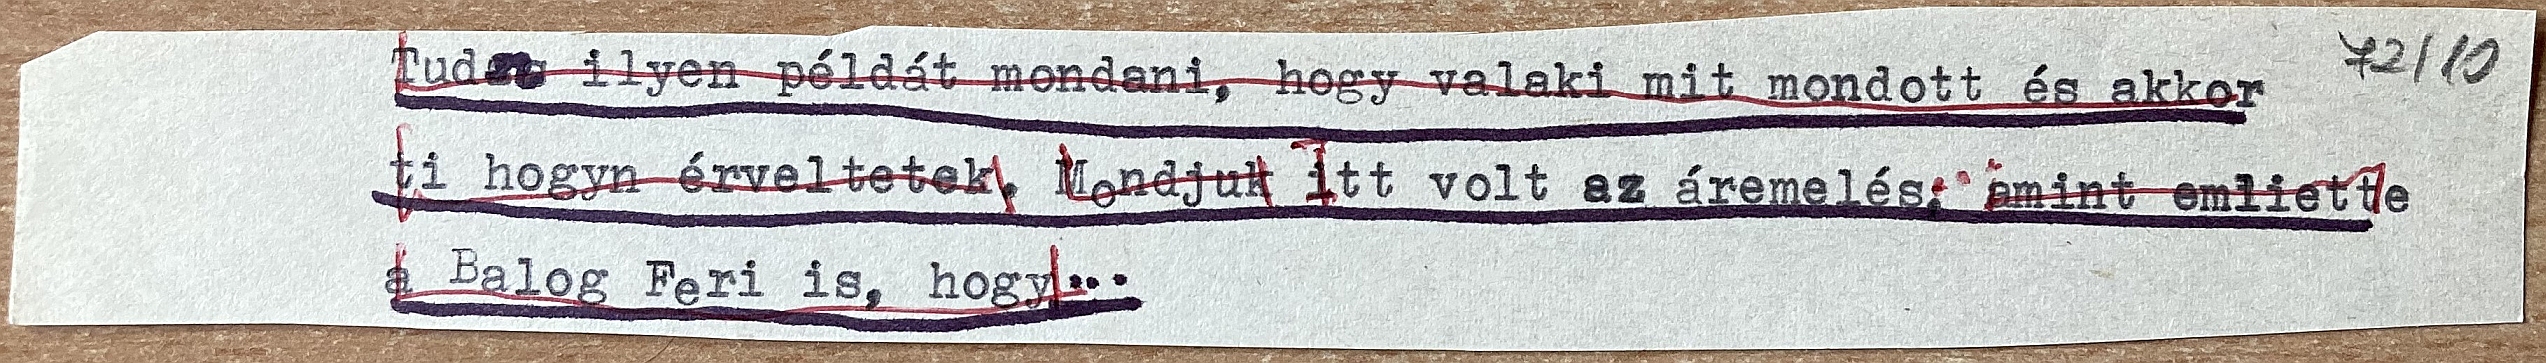 72/10
Tudsz ilyen példát mondani, hogy valaki mit mondott és akkor
ti hogyn érveltetek. Mondjuk itt volt az áremelés: amint emliette
a Balog Feri is, hogy...